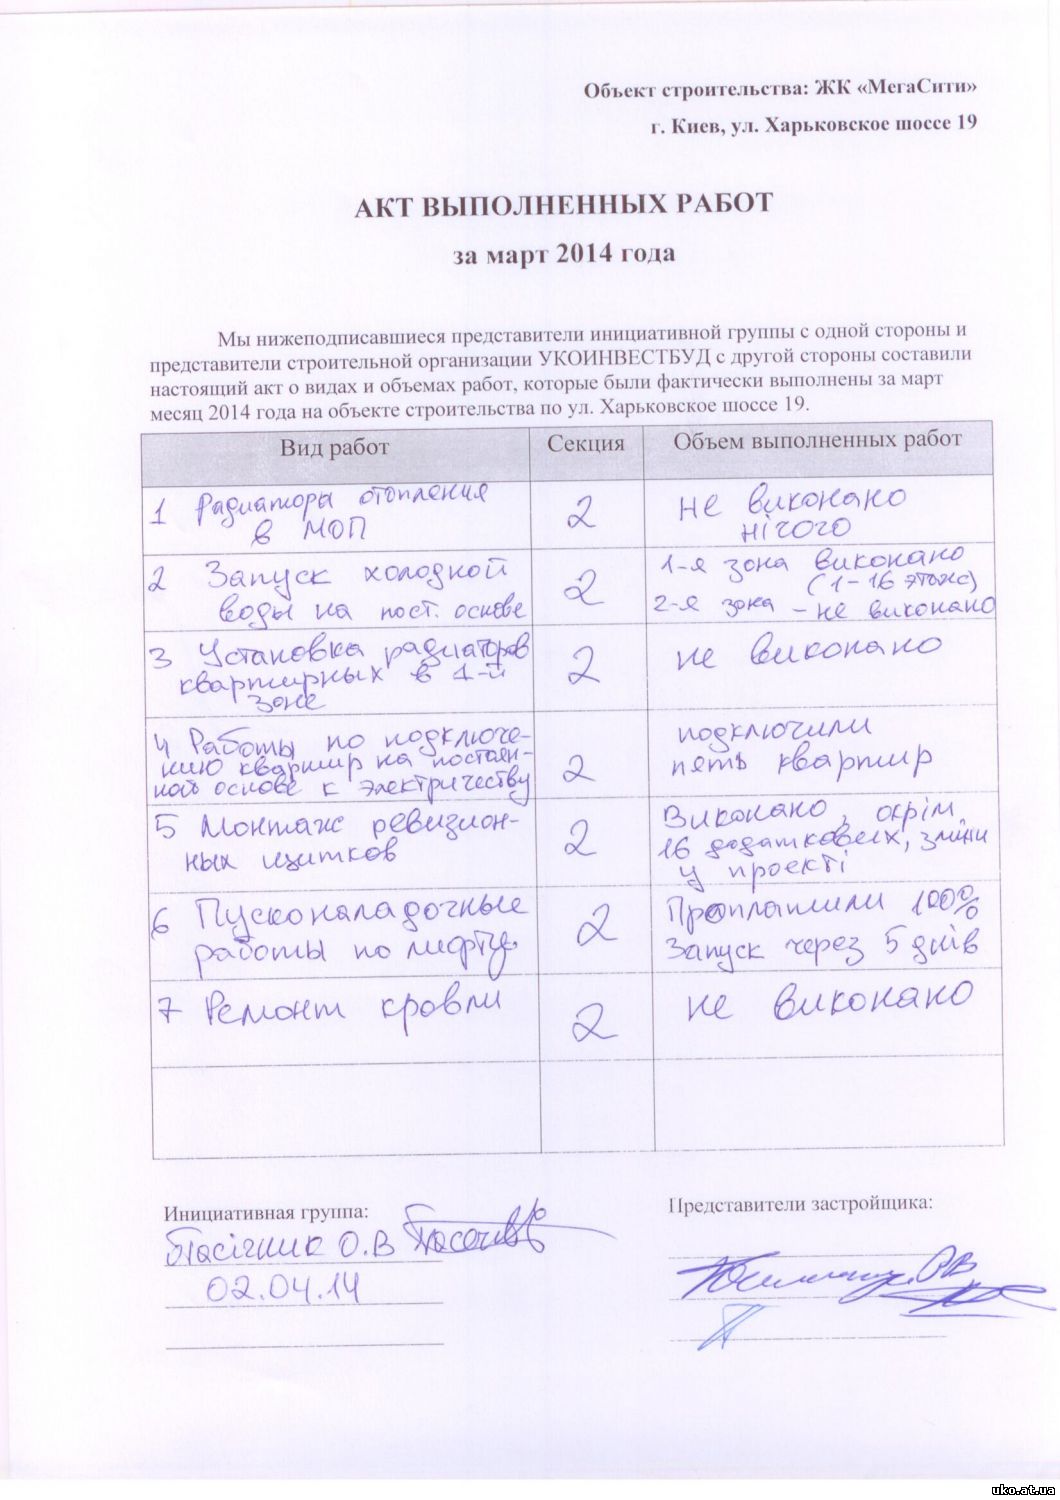 Объект строительства: ЖК «МегаСити»
г. Киев, ул. Харьковское шоссе 19
АКТ ВЫПОЛНЕННЫХ РАБОТ
за март 2014 года
Мы нижеподписавшиеся представители инициативной группы с одной стороны и
представители строительной организации УКОИНВЕСТБУД с другой стороны составили
настоящий акт о видах и объемах работ, которые были фактически выполнены за март
месяц 2014 года на объекте строительства по ул. Харьковское шоссе 19.
Вид работ Секция Объем выполненных работ
1 Радиаторы отопления
в МОП
2
не виконано
нічого
2 Запуск холодной
воды на пост. основе
2
1-я зона виконано
(1-16 этаж)
2-я зона – не виконано
3 Установка радиаторов
квартирных в 1-й
зоне
2
не виконано
4 Работы по подключе-
нию квартир на постоян-
ной основе к электричеству
2
подключили
пять квартир
5 Монтаж ревизион-
ных щитков
2
Виконано, окрім
16 додаткових, зміни
у проекті
6 Пусконаладочные
работы по лифту
2
Проплатили 100%
Запуск через 5 днів
7 Ремонт кровли
2
не виконано
Инициативная группа:
Пасічник О.В
02.04.14
Представители застройщика:
uko.at.ua